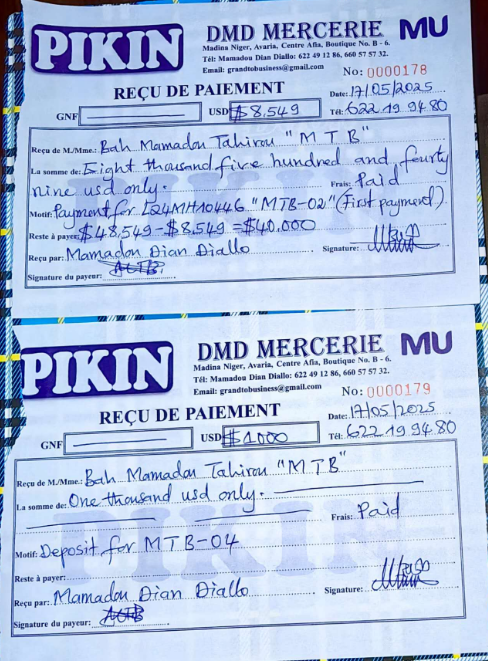 PIKIN
DMD MERCERIE MU
Madina Niger, Avaria, Centre Afia, Boutique No. B - 6.
Tél: Mamadou Dian Diallo: 622 49 12 86, 660 57 57 32.
Email: grandtobusiness@gmail.com
No: 0000178
REÇU DE PAIEMENT
Date: 17/05/2025
GNF USD $8,549 Tél: 622 19 94 80
Reçu de M./Mme.: Bah Mamadou Tahirou "MTB"
La somme de: Eight thousand five hundred and fourty
nine usd only. Frais: Paid
Motif: Payment for "MTB-02" (First payment).
Reste à payer: $48,549 - $8,549 = $40.000
Reçu par: Mamadou Dian Diallo Signature:
Signature du payeur:
PIKIN
DMD MERCERIE MU
Madina Niger, Avaria, Centre Afia, Boutique No. B - 6.
Tél: Mamadou Dian Diallo: 622 49 12 86, 660 57 57 32.
Email: grandtobusiness@gmail.com
No: 0000179
REÇU DE PAIEMENT
Date: 17/05/2025
GNF USD $1000 Tél: 622 19 94 80
Reçu de M./Mme.: Bah Mamadou Tahirou "MTB"
La somme de: One thousand usd only.
Frais: Paid
Motif: Deposit for MTB-04
Reste à payer:
Reçu par: Mamadou Dian Diallo Signature:
Signature du payeur: